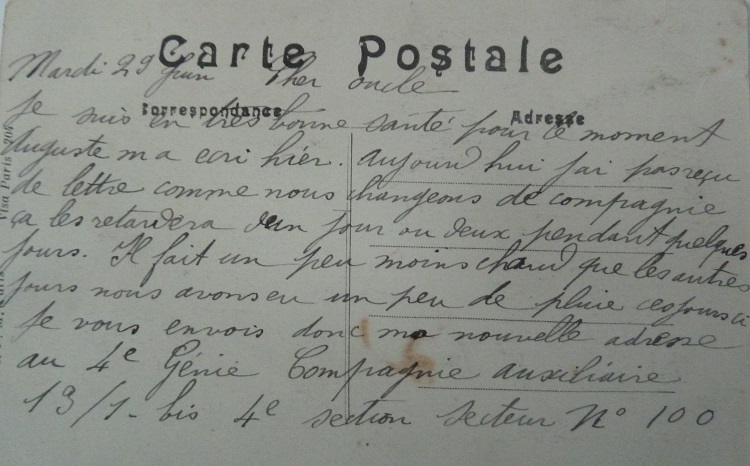 Carte Postale
Mardi 29 Juin Cher oncle
Correspondance Adresse
Je suis en très bonne santé pour ce moment
Auguste m a ecri hier. Aujourd hui j'ai pas reçu
de lettre comme nous changeons de compagnie
ça les retardera d'un jour ou deux pendant quelques
jours. Il fait un peu moins chaud que les autres
jours nous avons eu un peu de pluie ces jours ci
Je vous envois donc ma nouvelle adresse
au 4e Génie Compagnie auxiliaire
13/1-bis 4e section secteur N° 100
Visa Paris 204